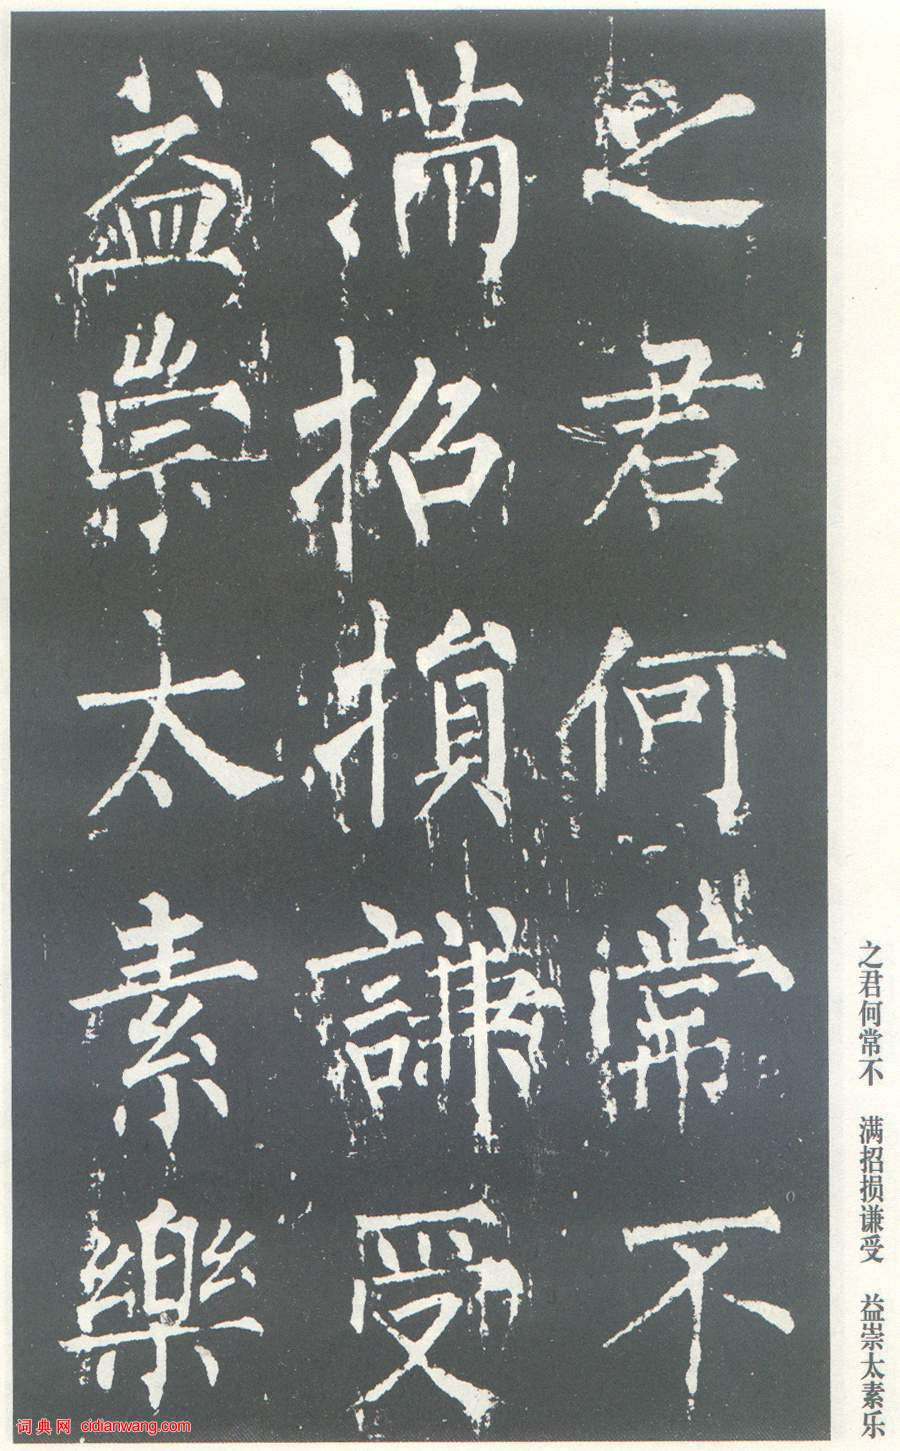 之君何常不
滿招損謙受
益崇太素樂
之君何常不 满招损谦受 益崇太素乐
词典网 cidianwang.com